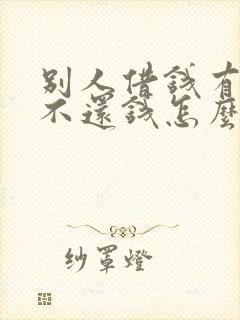 别人借錢有
不還錢怎麼
紗罩燈